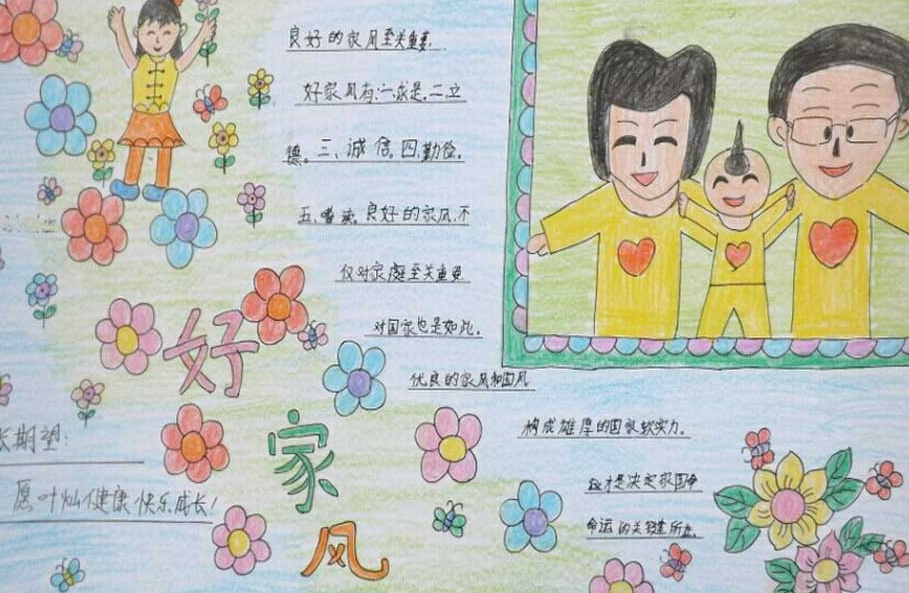 良好的家风至关重要.
好家风有:一.求是.二.立
德。三、诚信。四.勤俭。
五.嗜读.良好的家风,不
仅对家庭至关重要
对国家也是如此。
优良的家风和国风
构成雄厚的国家软实力。
这才是决定家国命
命运的关键所在.
好
家
风
长期望:
愿叶灿健康快乐成长!